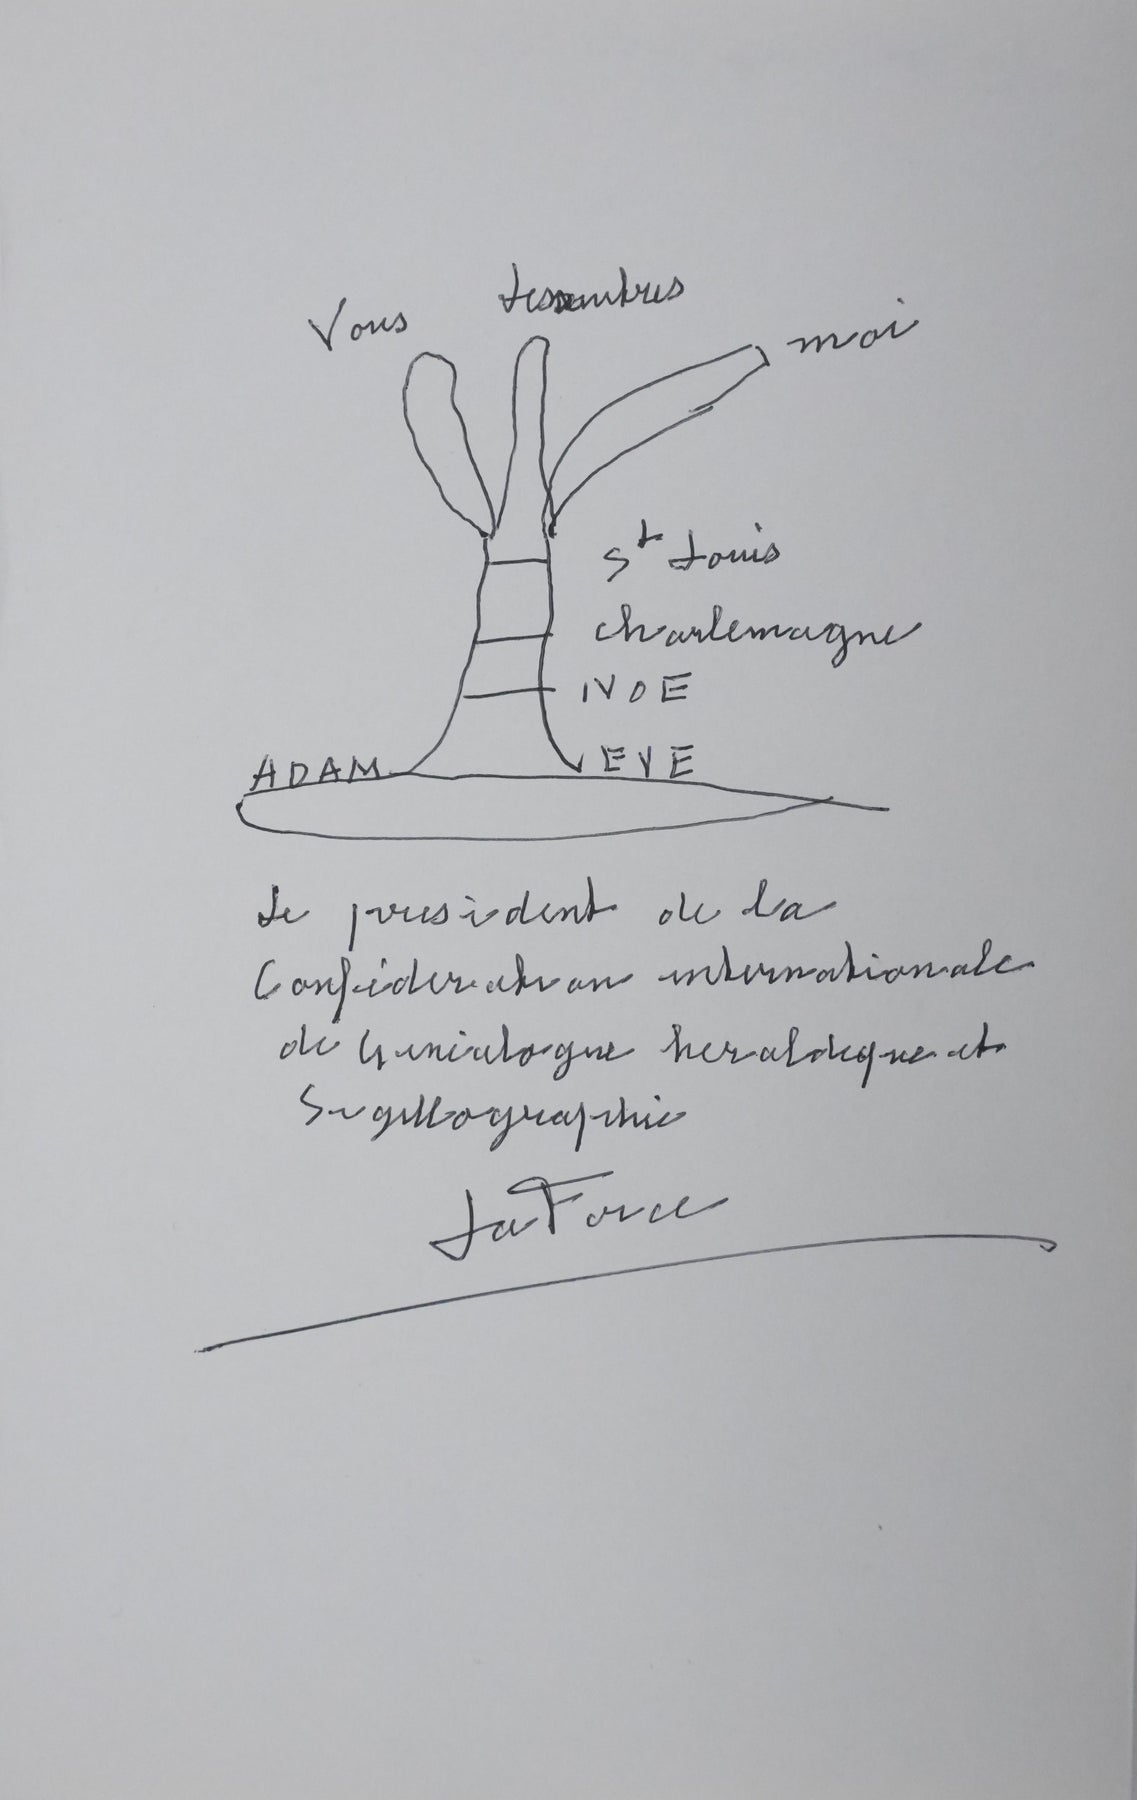 Vous
les autres
moi
St Louis
charlemagne
NOE
ADAM
EVE
Le president de la
Confédération internationale
de Généalogie heraldique et
Sigillographie
La Force